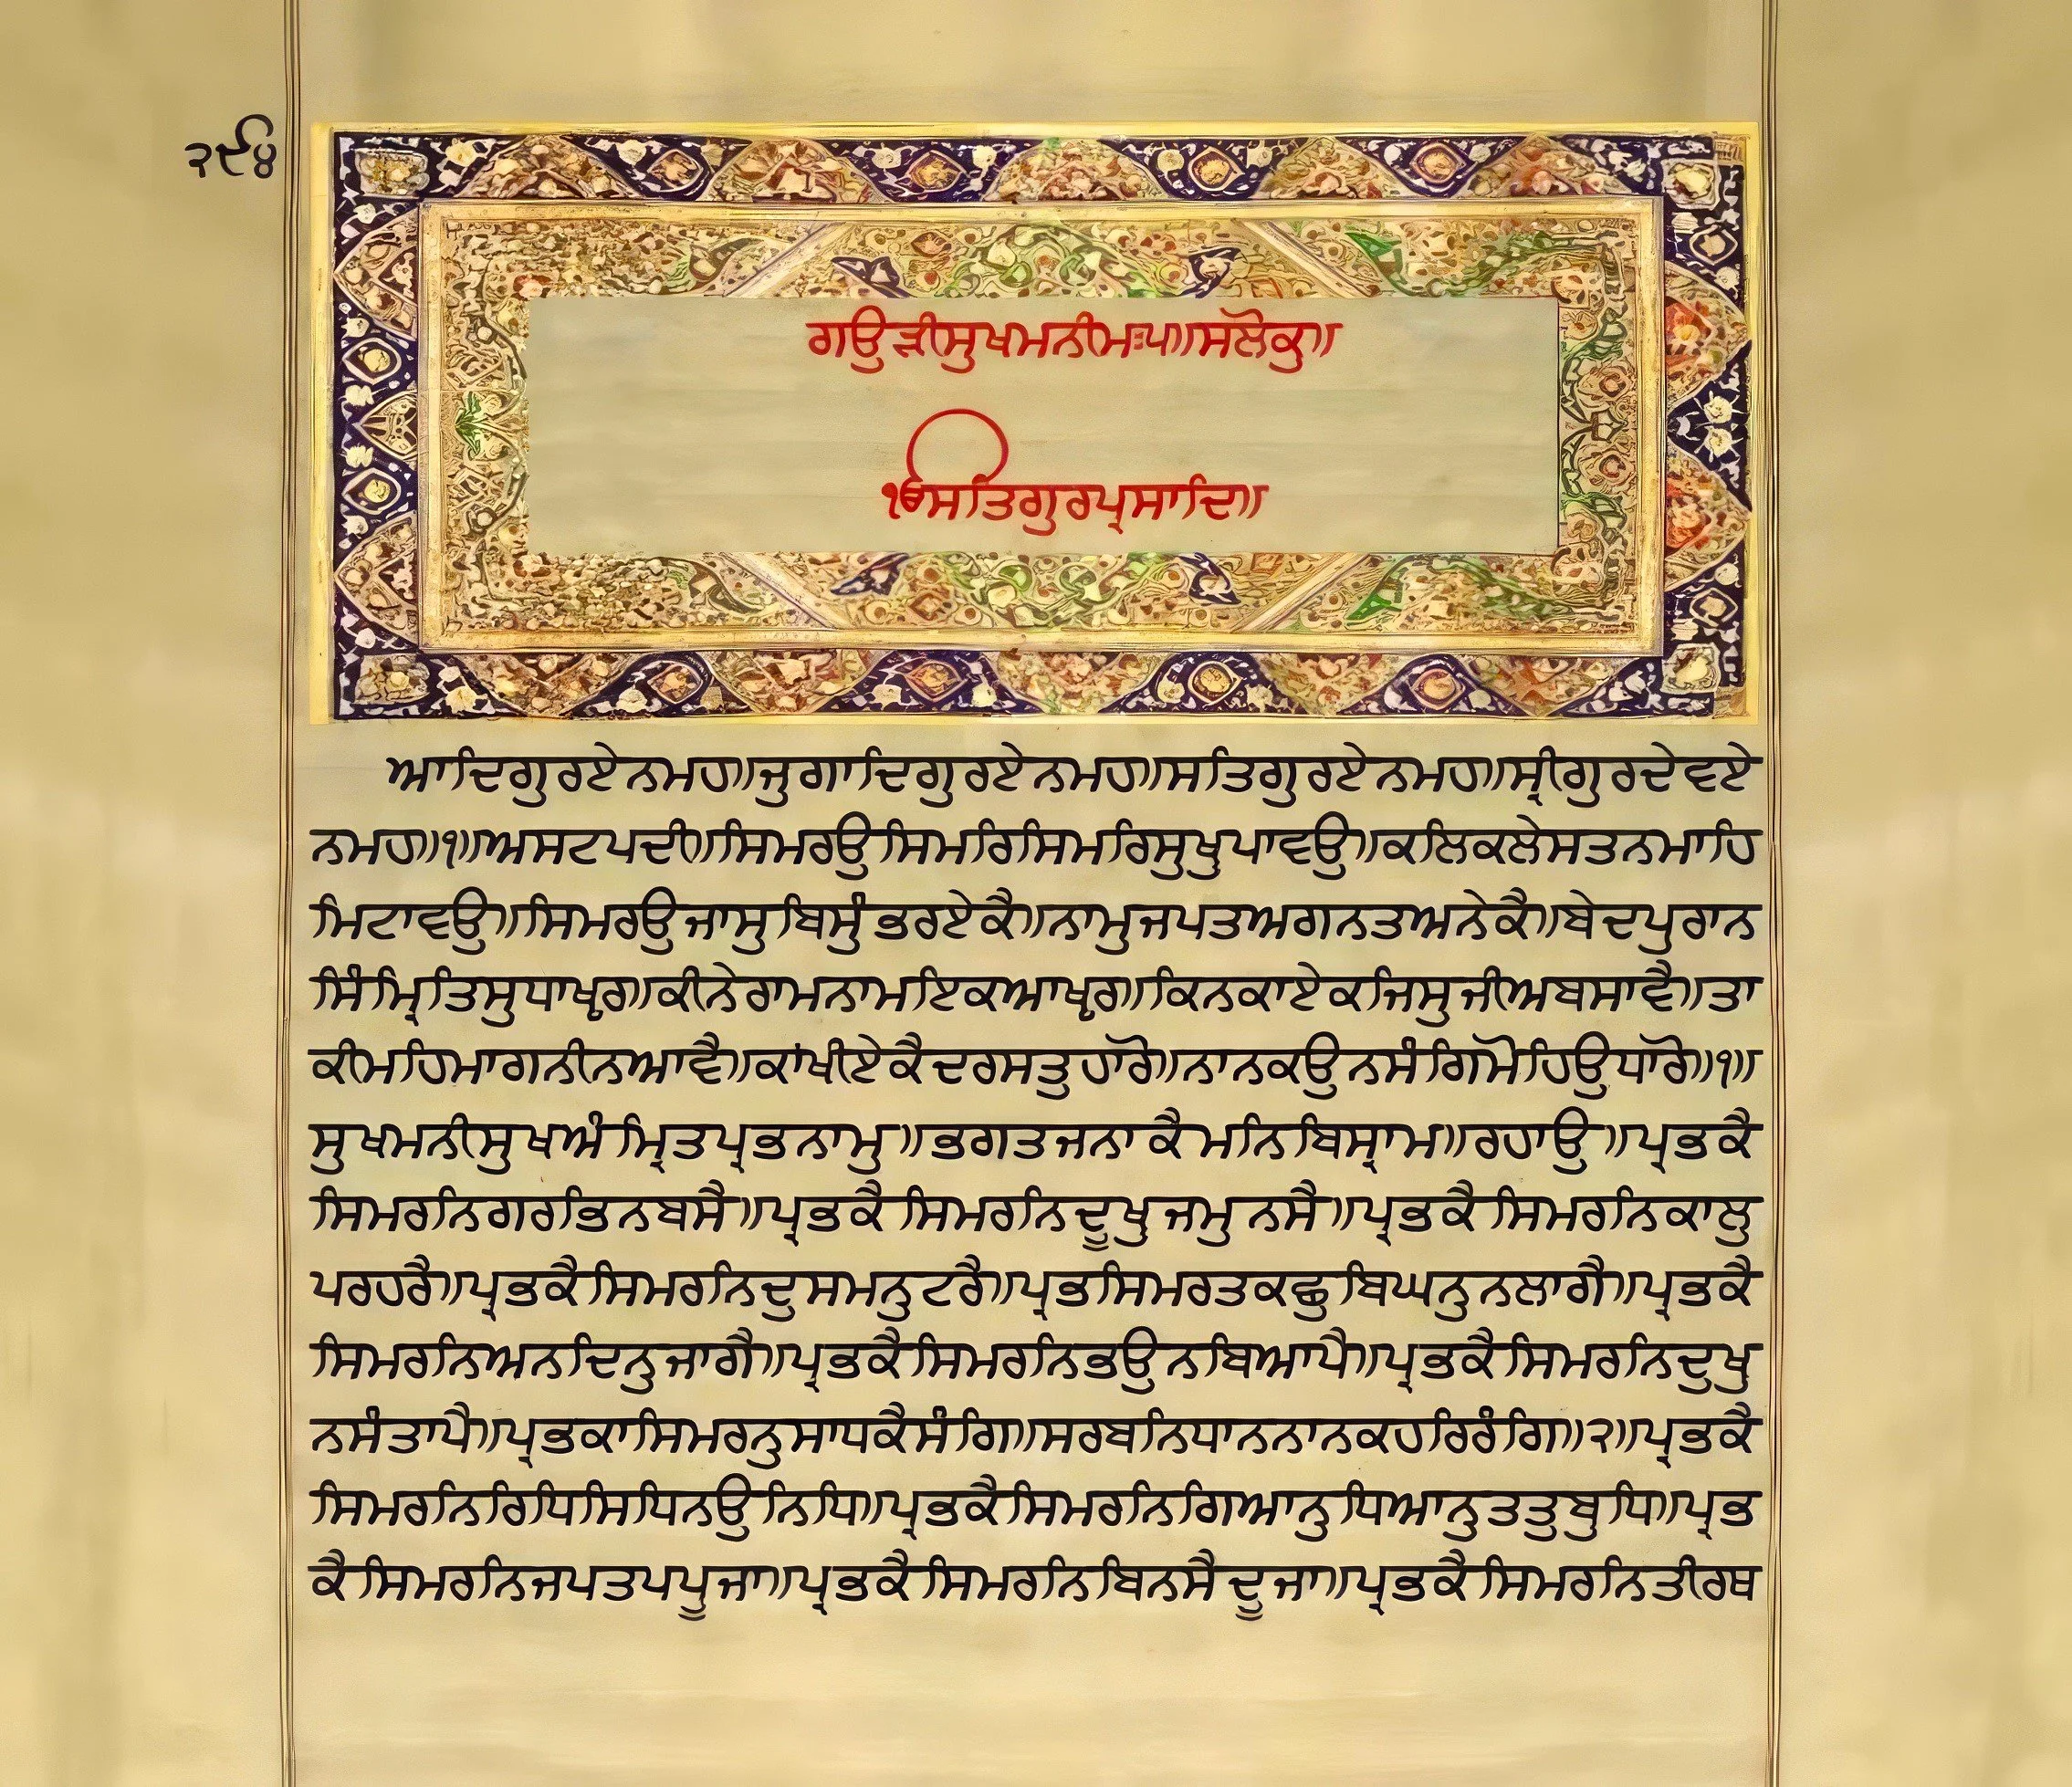 ੨੯੪
ਗਉੜੀਸੁਖਮਨੀਮਃ੫॥ਸਲੋਕੁ॥
ੴਸਤਿਗੁਰਪ੍ਰਸਾਦਿ॥
ਆਦਿਗੁਰਏਨਮਹ॥ਜੁਗਾਦਿਗੁਰਏਨਮਹ॥ਸਤਿਗੁਰਏਨਮਹ॥ਸ੍ਰੀਗੁਰਦੇਵਏ
ਨਮਹ॥੧॥ਅਸਟਪਦੀ॥ਸਿਮਰਉਸਿਮਰਿਸਿਮਰਿਸੁਖੁਪਾਵਉ॥ਕਲਿਕਲੇਸਤਨਮਾਹਿ
ਮਿਟਾਵਉ॥ਸਿਮਰਉਜਾਸੁਬਿਸੁੰਭਰਏਕੈ॥ਨਾਮੁਜਪਤਅਗਨਤਅਨੇਕੈ॥ਬੇਦਪੁਰਾਨ
ਸਿੰਮ੍ਰਿਤਿਸੁਧਾਖੵਰ॥ਕੀਨੇਰਾਮਨਾਮਇਕਆਖੵਰ॥ਕਿਨਕਾਏਕਜਿਸੁਜੀਅਬਸਾਵੈ॥ਤਾ
ਕੀਮਹਿਮਾਗਨੀਨਆਵੈ॥ਕਾਂਖੀਏਕੈਦਰਸਤੁਹਾਰੋ॥ਨਾਨਕਉਨਸੰਗਿਮੋਹਿਉਧਾਰੋ॥੧॥
ਸੁਖਮਨੀਸੁਖਅੰਮ੍ਰਿਤਪ੍ਰਭਨਾਮੁ॥ਭਗਤਜਨਾਕੈਮਨਿਬਿਸ੍ਰਾਮ॥ਰਹਾਉ॥ਪ੍ਰਭਕੈ
ਸਿਮਰਨਿਗਰਭਿਨਬਸੈ॥ਪ੍ਰਭਕੈਸਿਮਰਨਿਦੂਖੁਜਮੁਨਸੈ॥ਪ੍ਰਭਕੈਸਿਮਰਨਿਕਾਲੁ
ਪਰਹਰੈ॥ਪ੍ਰਭਕੈਸਿਮਰਨਿਦੁਸਮਨੁਟਰੈ॥ਪ੍ਰਭਸਿਮਰਤਕਛੁਬਿਘਨੁਨਲਾਗੈ॥ਪ੍ਰਭਕੈ
ਸਿਮਰਨਿਅਨਦਿਨੁਜਾਗੈ॥ਪ੍ਰਭਕੈਸਿਮਰਨਿਭਉਨਬਿਆਪੈ॥ਪ੍ਰਭਕੈਸਿਮਰਨਿਦੁਖੁ
ਨਸੰਤਾਪੈ॥ਪ੍ਰਭਕਾਸਿਮਰਨੁਸਾਧਕੈਸੰਗਿ॥ਸਰਬਨਿਧਾਨਨਾਨਕਹਰਿਰੰਗਿ॥੨॥ਪ੍ਰਭਕੈ
ਸਿਮਰਨਿਰਿਧਿਸਿਧਿਨਉਨਿਧਿ॥ਪ੍ਰਭਕੈਸਿਮਰਨਿਗਿਆਨੁਧਿਆਨੁਤਤੁਬੁਧਿ॥ਪ੍ਰਭ
ਕੈਸਿਮਰਨਿਜਪਤਪਪੂਜਾ॥ਪ੍ਰਭਕੈਸਿਮਰਨਿਬਿਨਸੈਦੂਜਾ॥ਪ੍ਰਭਕੈਸਿਮਰਨਿਤੀਰਥ